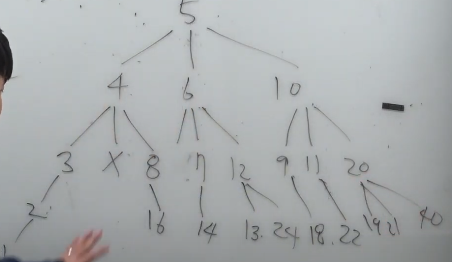 5
4 6 10
3 X 8 7 12 9 11 20
2 16 14 13. 24 18. 22 19 21 40
1